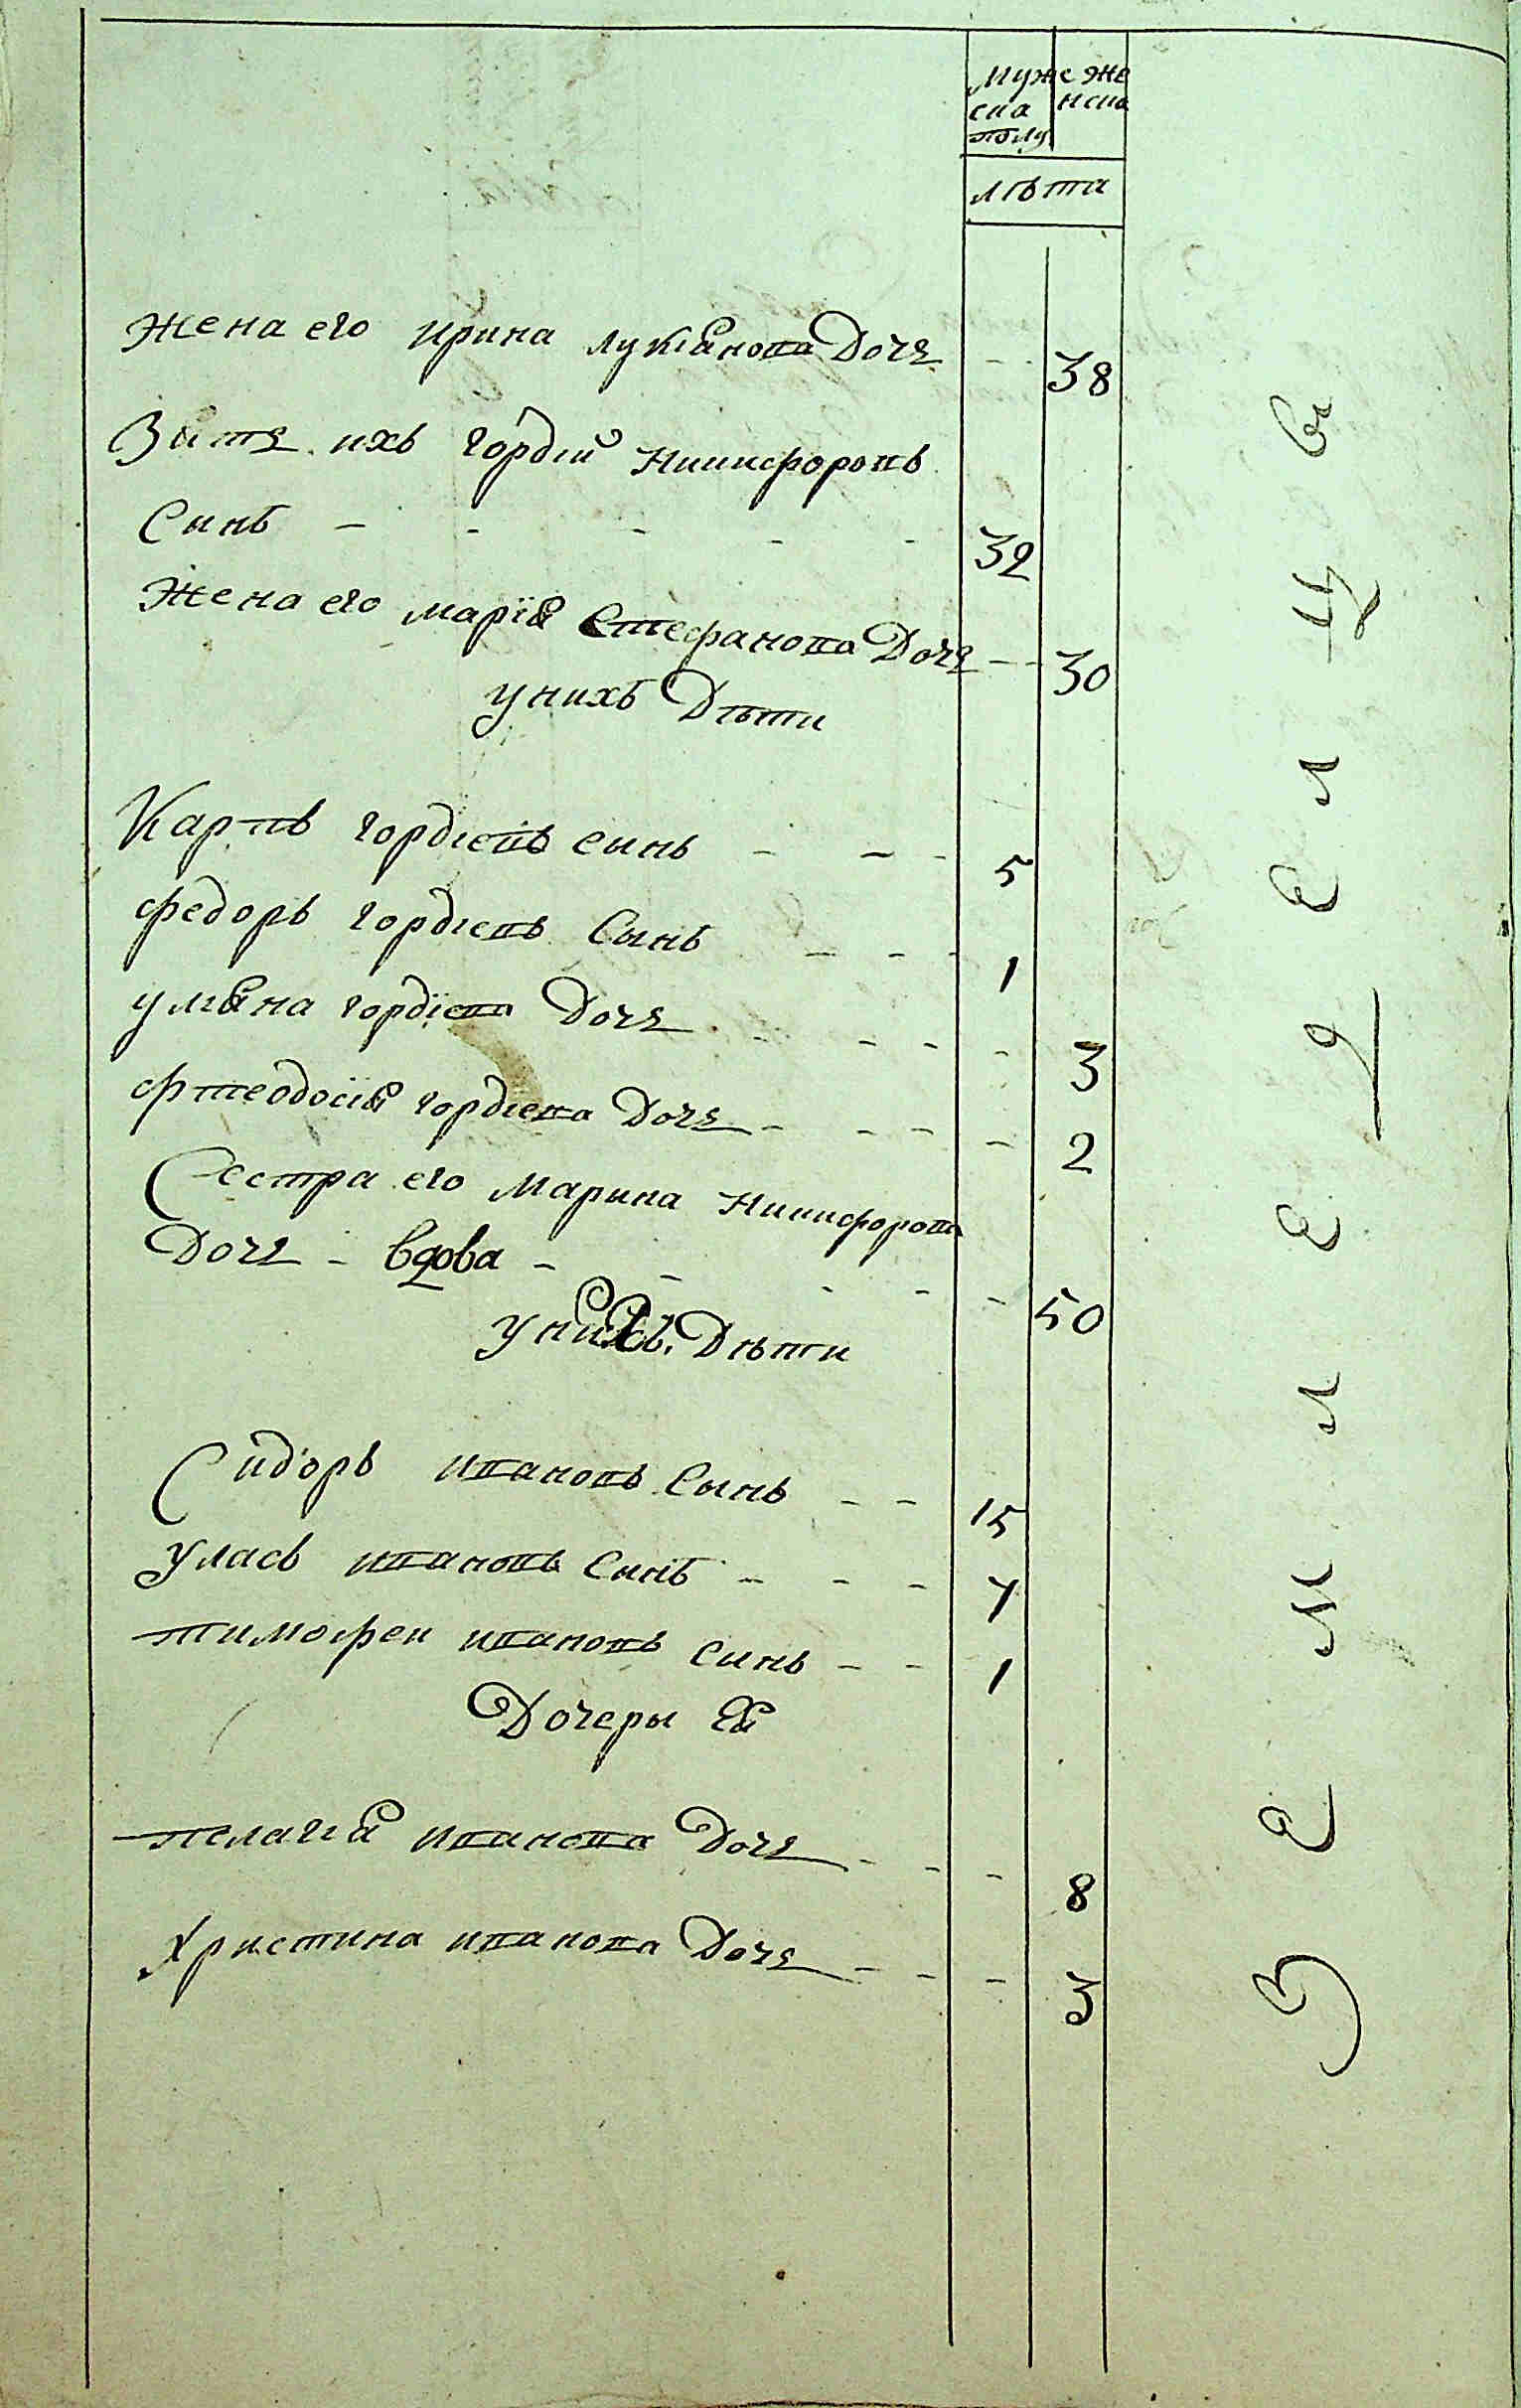 Муже же
ска нска
полу
лѣта
Жена его ирина лукіянова Дочь - - 38
Зять ихъ гордій никифоровъ
Синъ - - - - - 32
Жена его марїя Стефанова Дочь - - 30
унихъ Дѣти
Карпъ гордіевъ синъ - - - 5
федоръ гордіевъ Сынъ - - - 1
уляна гордїева Дочь - - - - 3
фтеодосія гордіева Дочь - - - - 2
Сестра его Марина Никифорова
Дочь - вдова - - - - - 50
унихъ Дѣти
Сидоръ ивановъ Сынъ - - 15
Уласъ ивановъ Синъ - - - 7
тимофеи ивановъ синъ - - 1
Дочеры Ея
пелагія иванова Дочь - - - 8
Христина иванова Дочь - - - 3
Земледелцъ